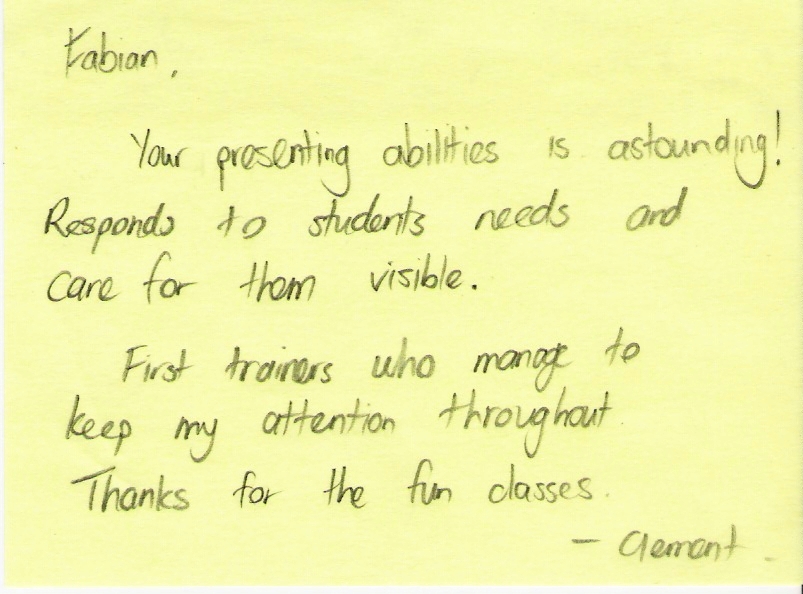 Fabian,
Your presenting abilities is astounding!
Responds to students needs and
care for them visible.
First trainers who manage to
keep my attention throughout
Thanks for the fun classes.
- Clement.